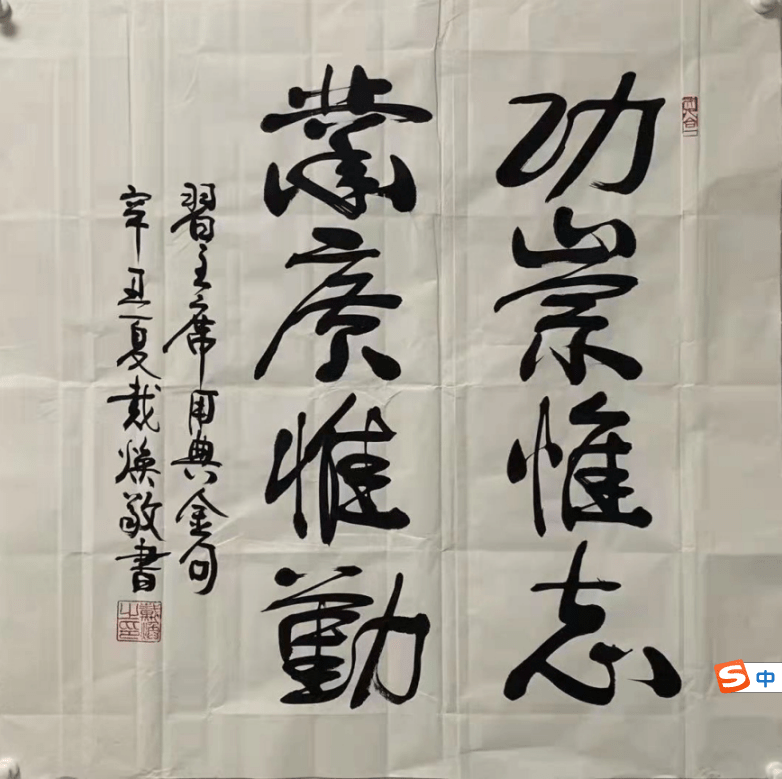 功崇惟志
業廣惟勤
習主席用典金句
辛丑夏戴焕敬書
中